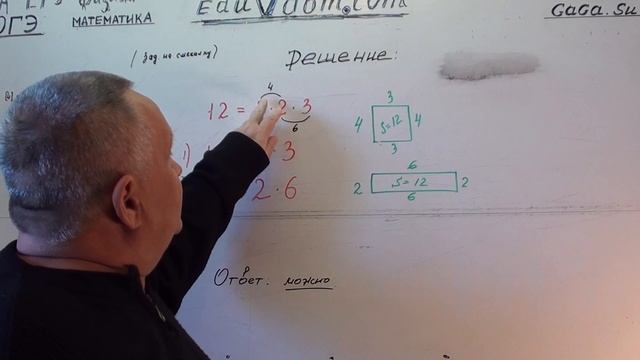 ОГЭ
МАТЕМАТИКА
EduVdom.com
GaGa.Su
(Зад на смекалку)
Решение:
4
12 = 2 · 2 · 3
6
1) · 3
2 · 6
3
4 S=12 4
3
6
2 S=12 2
6
Ответ. можно